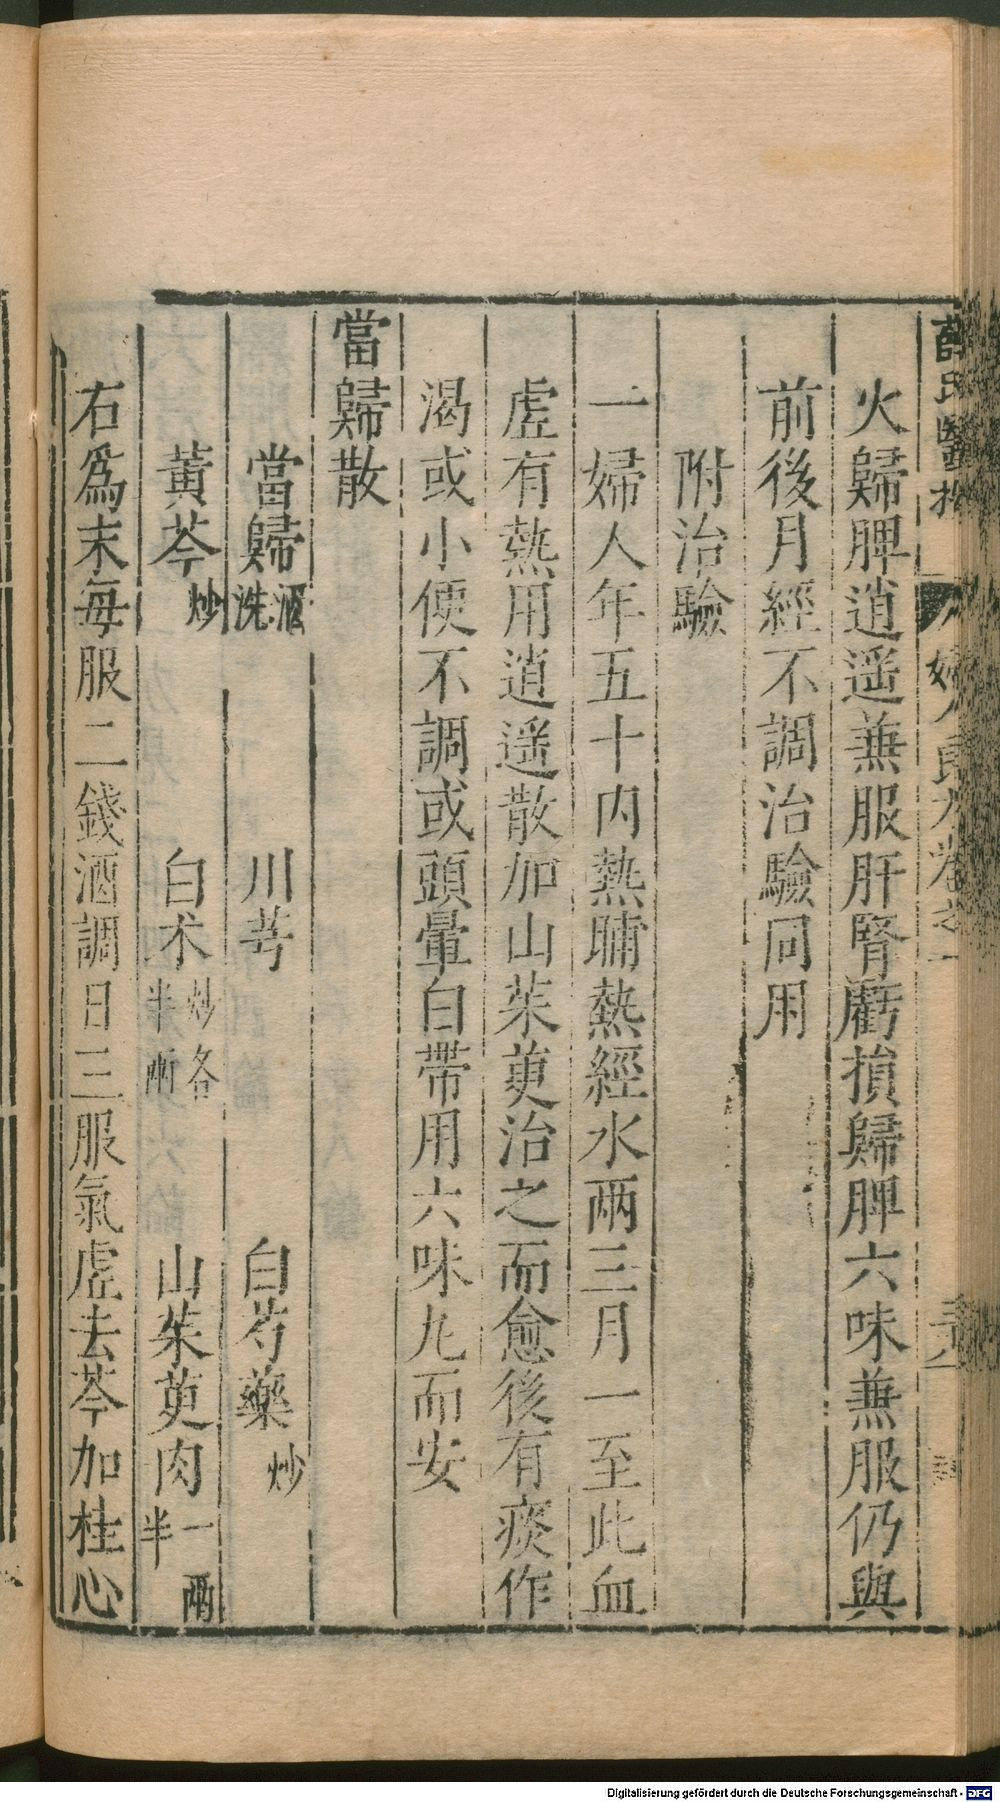 薛氏醫按 婦人良方卷之一
火歸脾逍遥兼服肝腎虧損歸脾六味兼服仍與
前後月經不調治驗同用
附治驗
一婦人年五十内熱晡熱經水兩三月一至此血
虛有熱用逍遥散加山茱萸治之而愈後有痰作
渴或小便不調或頭暈白帶用六味丸而安
當歸散
當歸酒洗 川芎 白芍藥炒
黄芩炒 白朮炒各半兩 山茱萸肉一兩半
右爲末每服二錢酒調日三服氣虛去芩加桂心
Digitalisierung gefördert durch die Deutsche Forschungsgemeinschaft - DFG